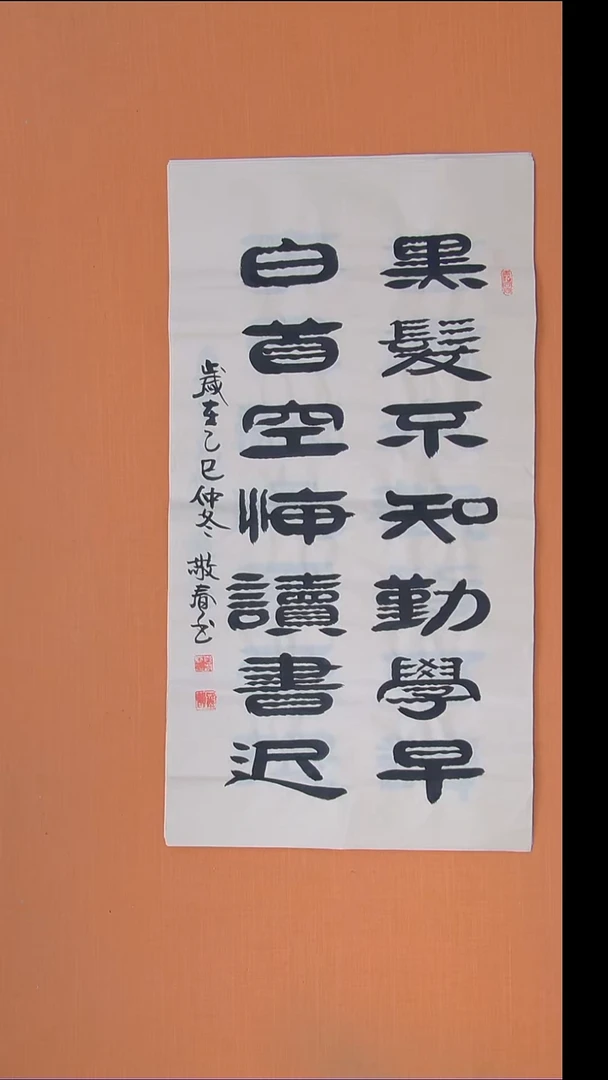 黑髮不知勤學早
白首空悔讀書迟
歲在乙巳仲冬敬春书